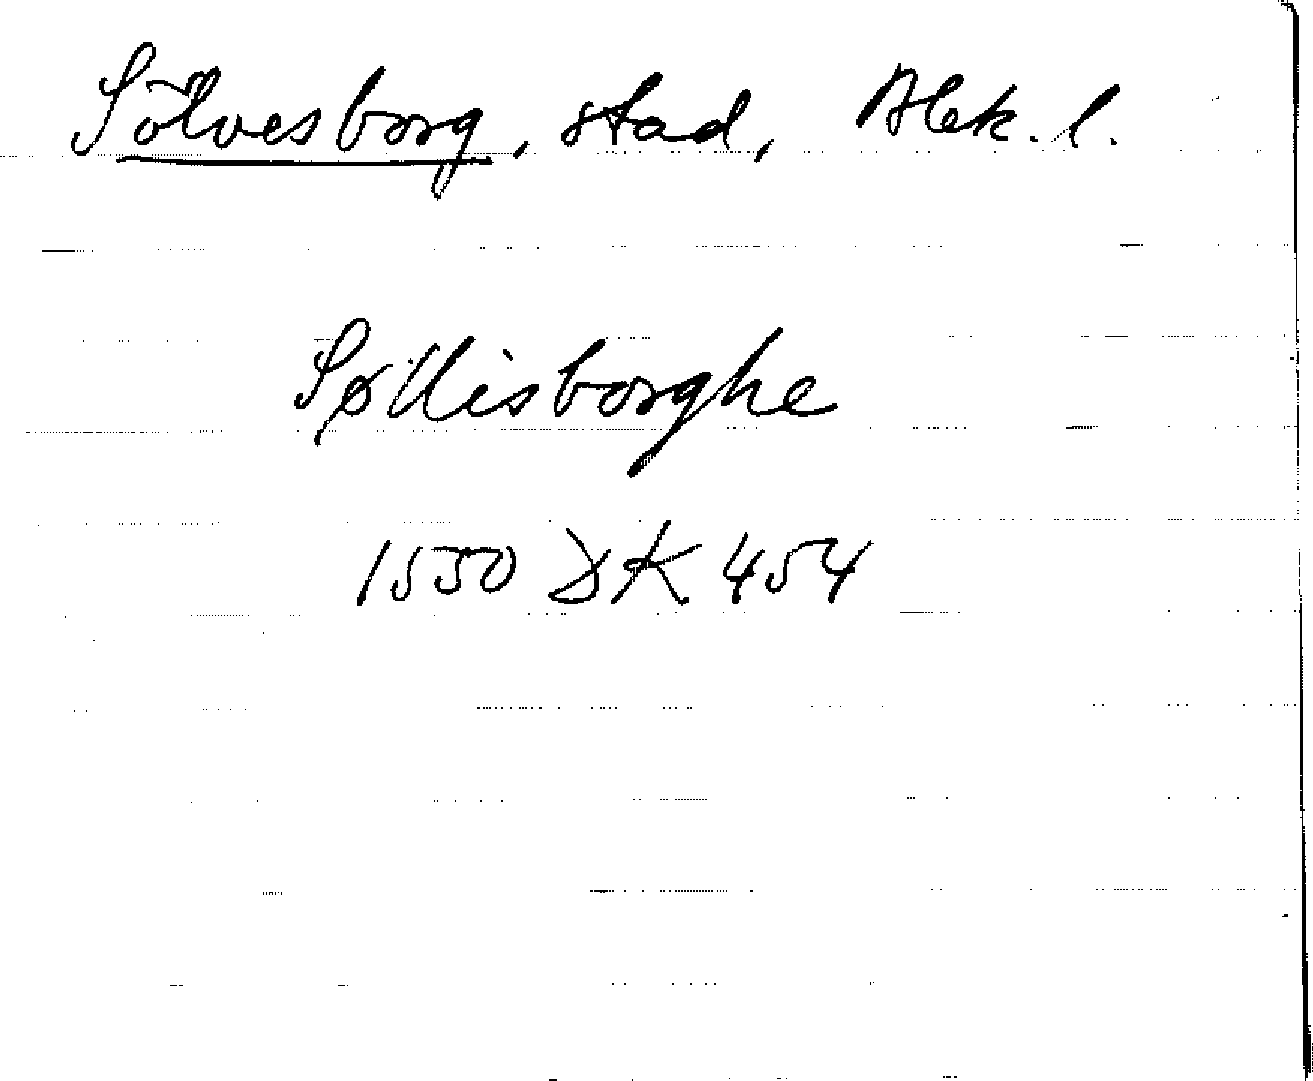 Sölvesborg, stad, Blek. l.
Søllisborghe
1550 DK 454